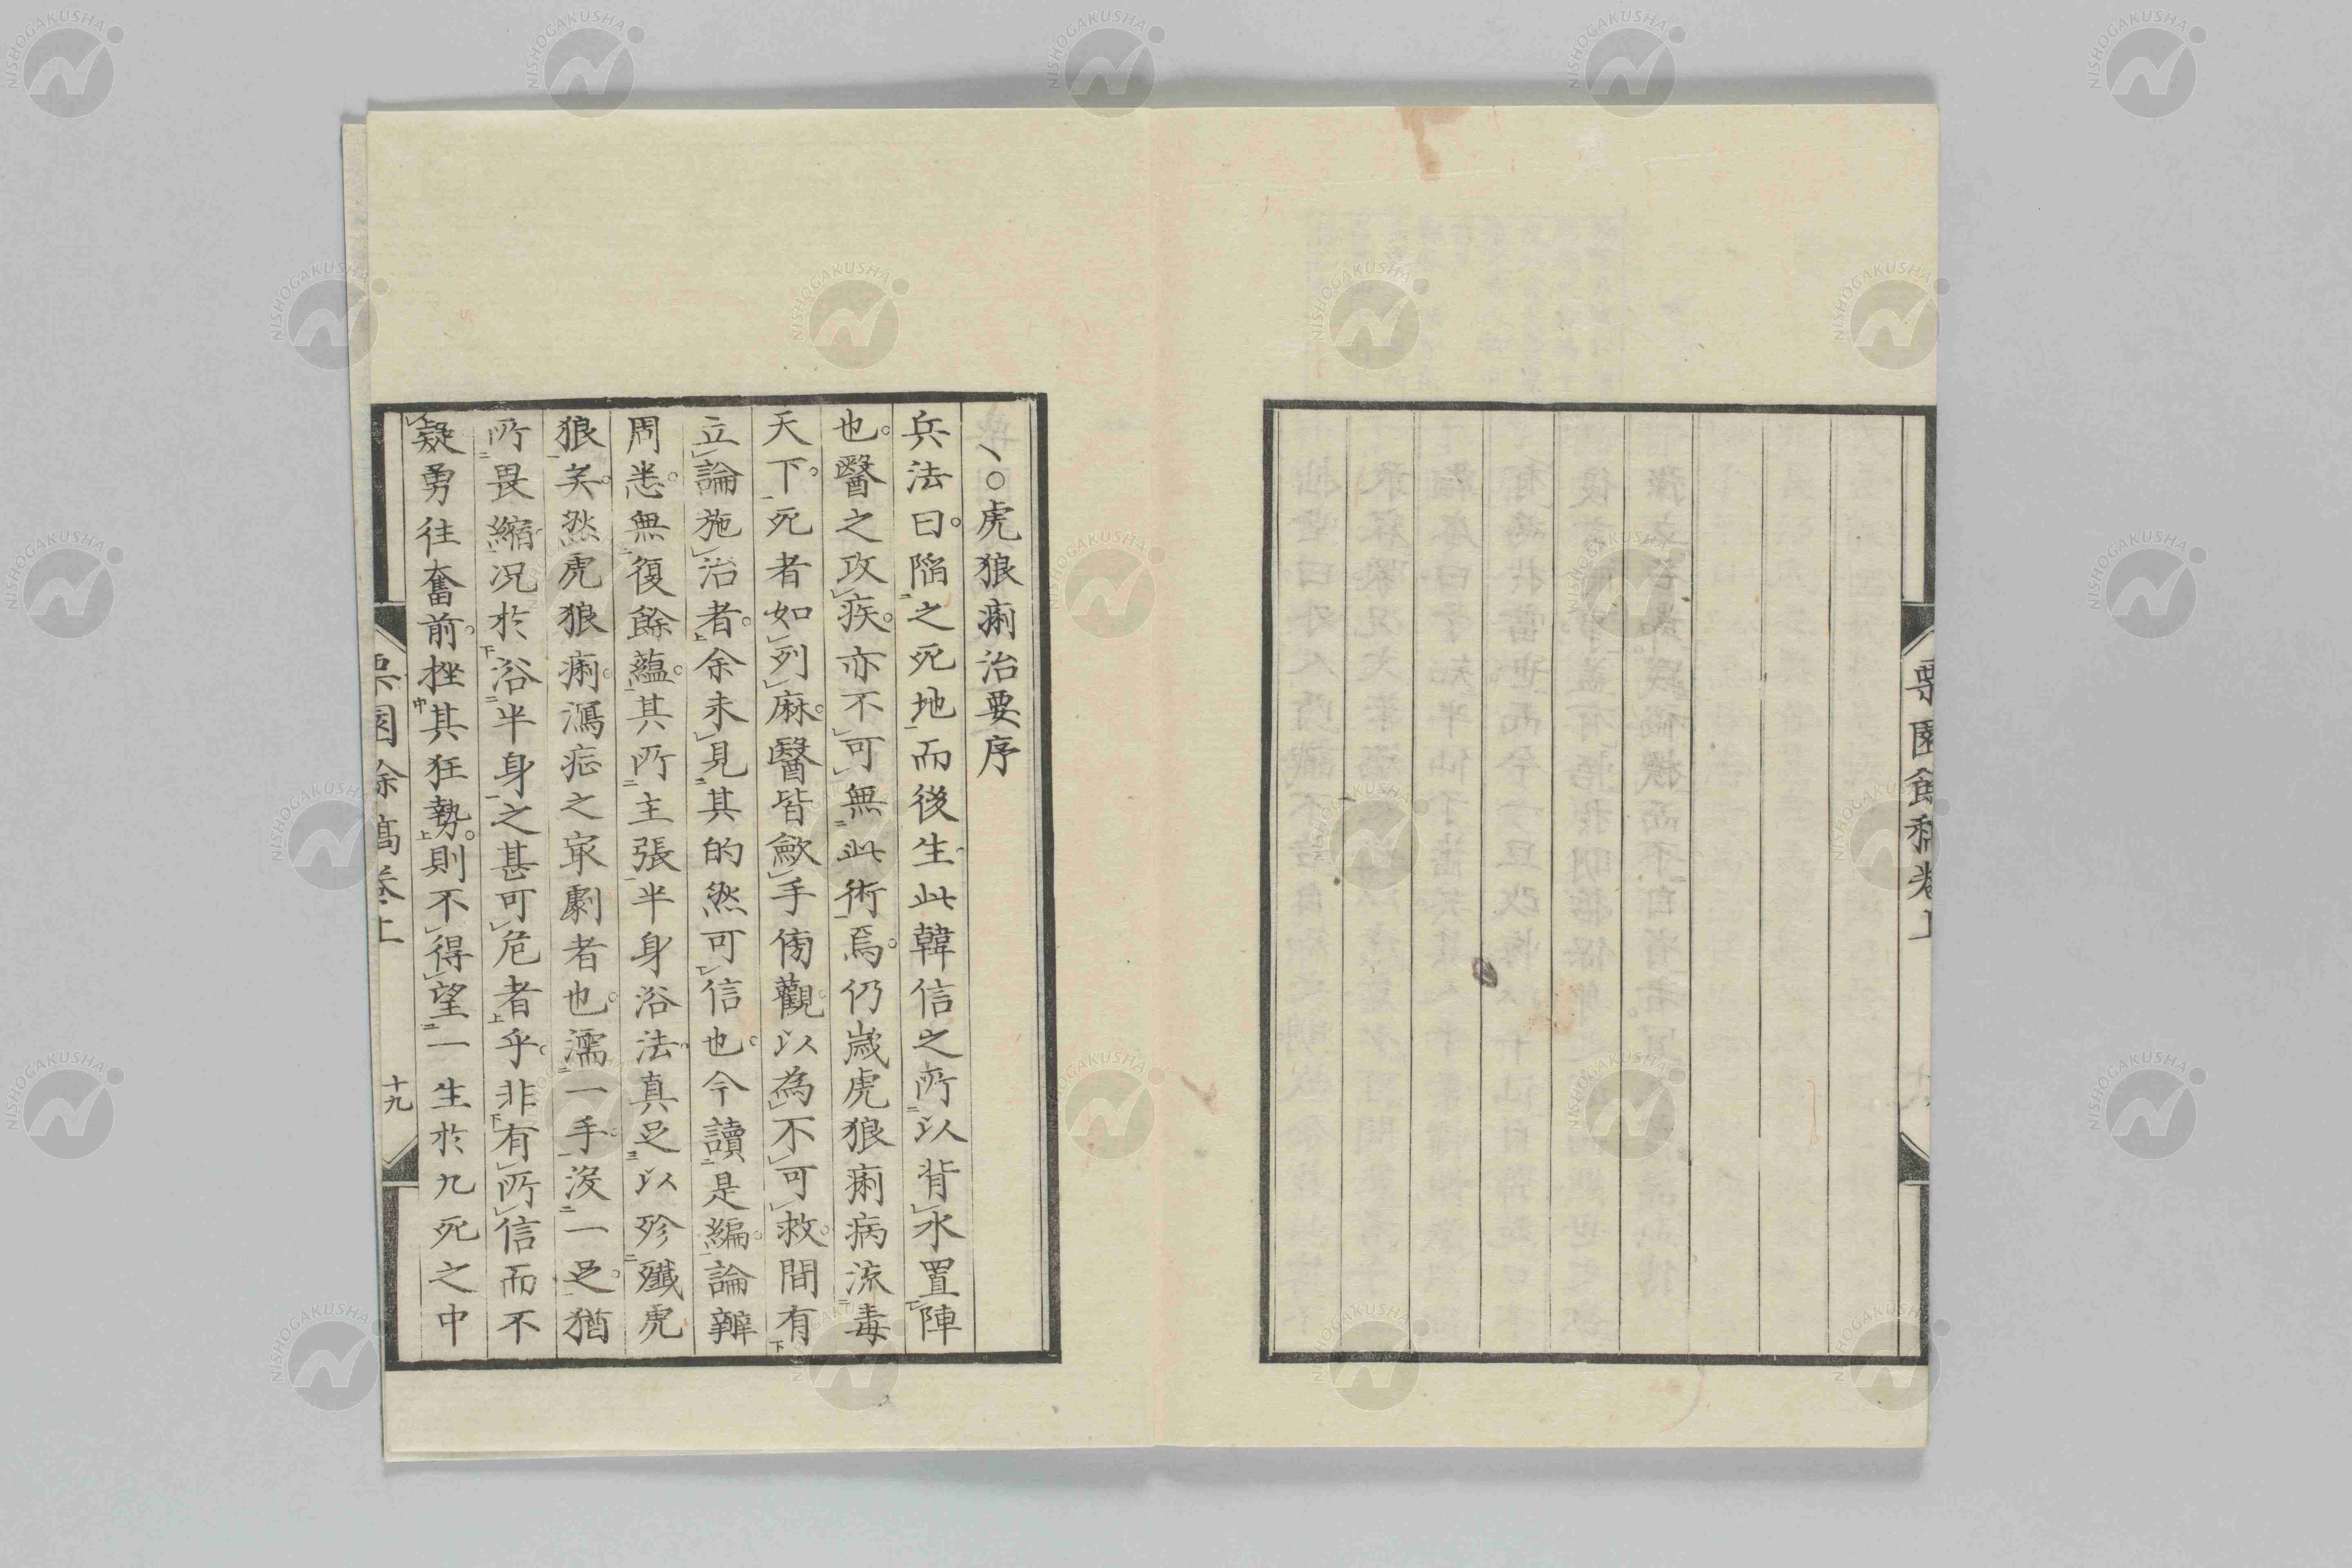 栗園餘稿卷上
、○虎狼痢治要序
兵法曰陷之死地而後生此韓信之所以背水置陣
也醫之攻疾亦不可無此術焉仍歲虎狼痢病流毒
天下死者如列麻醫皆斂手傍觀以為不可救間有
立論施治者余未見其的然可信也今讀是編論辨
周悉無復餘蘊其所主張半身浴法真足以殄殲虎
狼矣然虎狼痢瀉症之最劇者也濡一手沒一足猶
所畏縮況於浴半身之甚可危者乎非有所信而不
疑勇往奮前挫其狂勢則不得望一生於九死之中
栗園餘稿卷上
十九
NISHOGAKUSHA